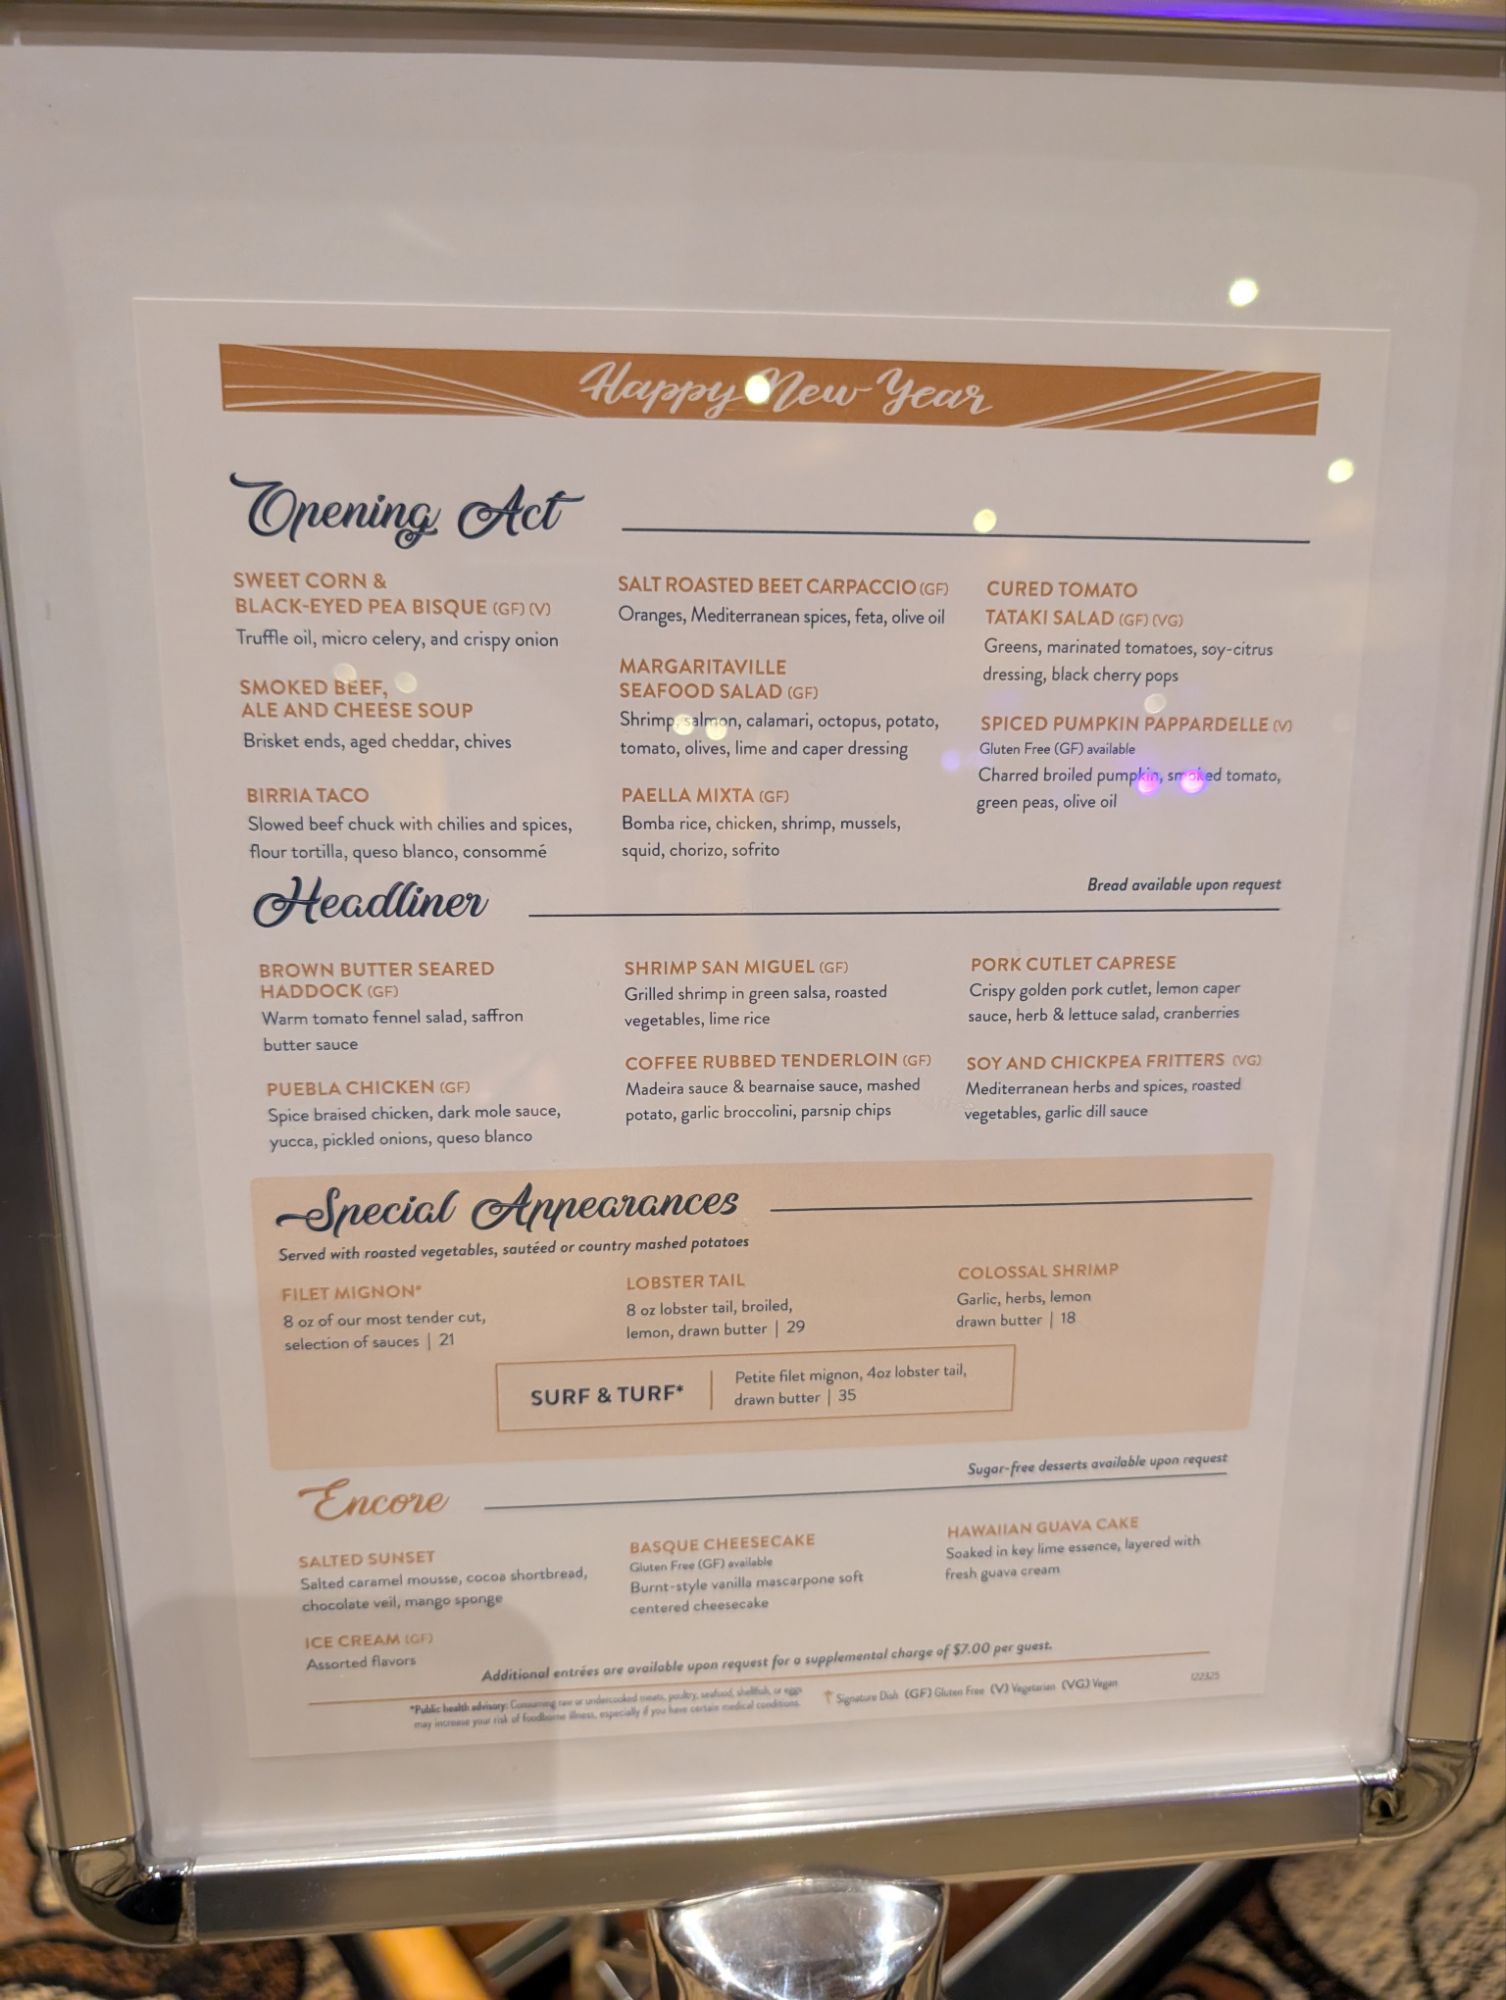 Happy New Year
Opening Act
SWEET CORN &
BLACK-EYED PEA BISQUE (GF) (V)
Truffle oil, micro celery, and crispy onion
SMOKED BEEF,
ALE AND CHEESE SOUP
Brisket ends, aged cheddar, chives
BIRRIA TACO
Slowed beef chuck with chilies and spices,
flour tortilla, queso blanco, consommé
SALT ROASTED BEET CARPACCIO (GF)
Oranges, Mediterranean spices, feta, olive oil
MARGARITAVILLE
SEAFOOD SALAD (GF)
Shrimp, salmon, calamari, octopus, potato,
tomato, olives, lime and caper dressing
PAELLA MIXTA (GF)
Bomba rice, chicken, shrimp, mussels,
squid, chorizo, sofrito
CURED TOMATO
TATAKI SALAD (GF) (VG)
Greens, marinated tomatoes, soy-citrus
dressing, black cherry pops
SPICED PUMPKIN PAPPARDELLE (V)
Gluten Free (GF) available
Charred broiled pumpkin, smoked tomato,
green peas, olive oil
Bread available upon request
Headliner
BROWN BUTTER SEARED
HADDOCK (GF)
Warm tomato fennel salad, saffron
butter sauce
PUEBLA CHICKEN (GF)
Spice braised chicken, dark mole sauce,
yucca, pickled onions, queso blanco
SHRIMP SAN MIGUEL (GF)
Grilled shrimp in green salsa, roasted
vegetables, lime rice
COFFEE RUBBED TENDERLOIN (GF)
Madeira sauce & bearnaise sauce, mashed
potato, garlic broccolini, parsnip chips
PORK CUTLET CAPRESE
Crispy golden pork cutlet, lemon caper
sauce, herb & lettuce salad, cranberries
SOY AND CHICKPEA FRITTERS (VG)
Mediterranean herbs and spices, roasted
vegetables, garlic dill sauce
Special Appearances
Served with roasted vegetables, sautéed or country mashed potatoes
FILET MIGNON*
8 oz of our most tender cut,
selection of sauces | 21
LOBSTER TAIL
8 oz lobster tail, broiled,
lemon, drawn butter | 29
COLOSSAL SHRIMP
Garlic, herbs, lemon
drawn butter | 18
SURF & TURF*
Petite filet mignon, 4oz lobster tail,
drawn butter | 35
Sugar-free desserts available upon request
Encore
SALTED SUNSET
Salted caramel mousse, cocoa shortbread,
chocolate veil, mango sponge
ICE CREAM (GF)
Assorted flavors
BASQUE CHEESECAKE
Gluten Free (GF) available
Burnt-style vanilla mascarpone soft
centered cheesecake
HAWAIIAN GUAVA CAKE
Soaked in key lime essence, layered with
fresh guava cream
Additional entrées are available upon request for a supplemental charge of $7.00 per guest.
*Public health advisory: Consuming raw or undercooked meats, poultry, seafood, shellfish, or eggs
may increase your risk of foodborne illness, especially if you have certain medical conditions.
Signature Dish (GF) Gluten Free (V) Vegetarian (VG) Vegan
122325